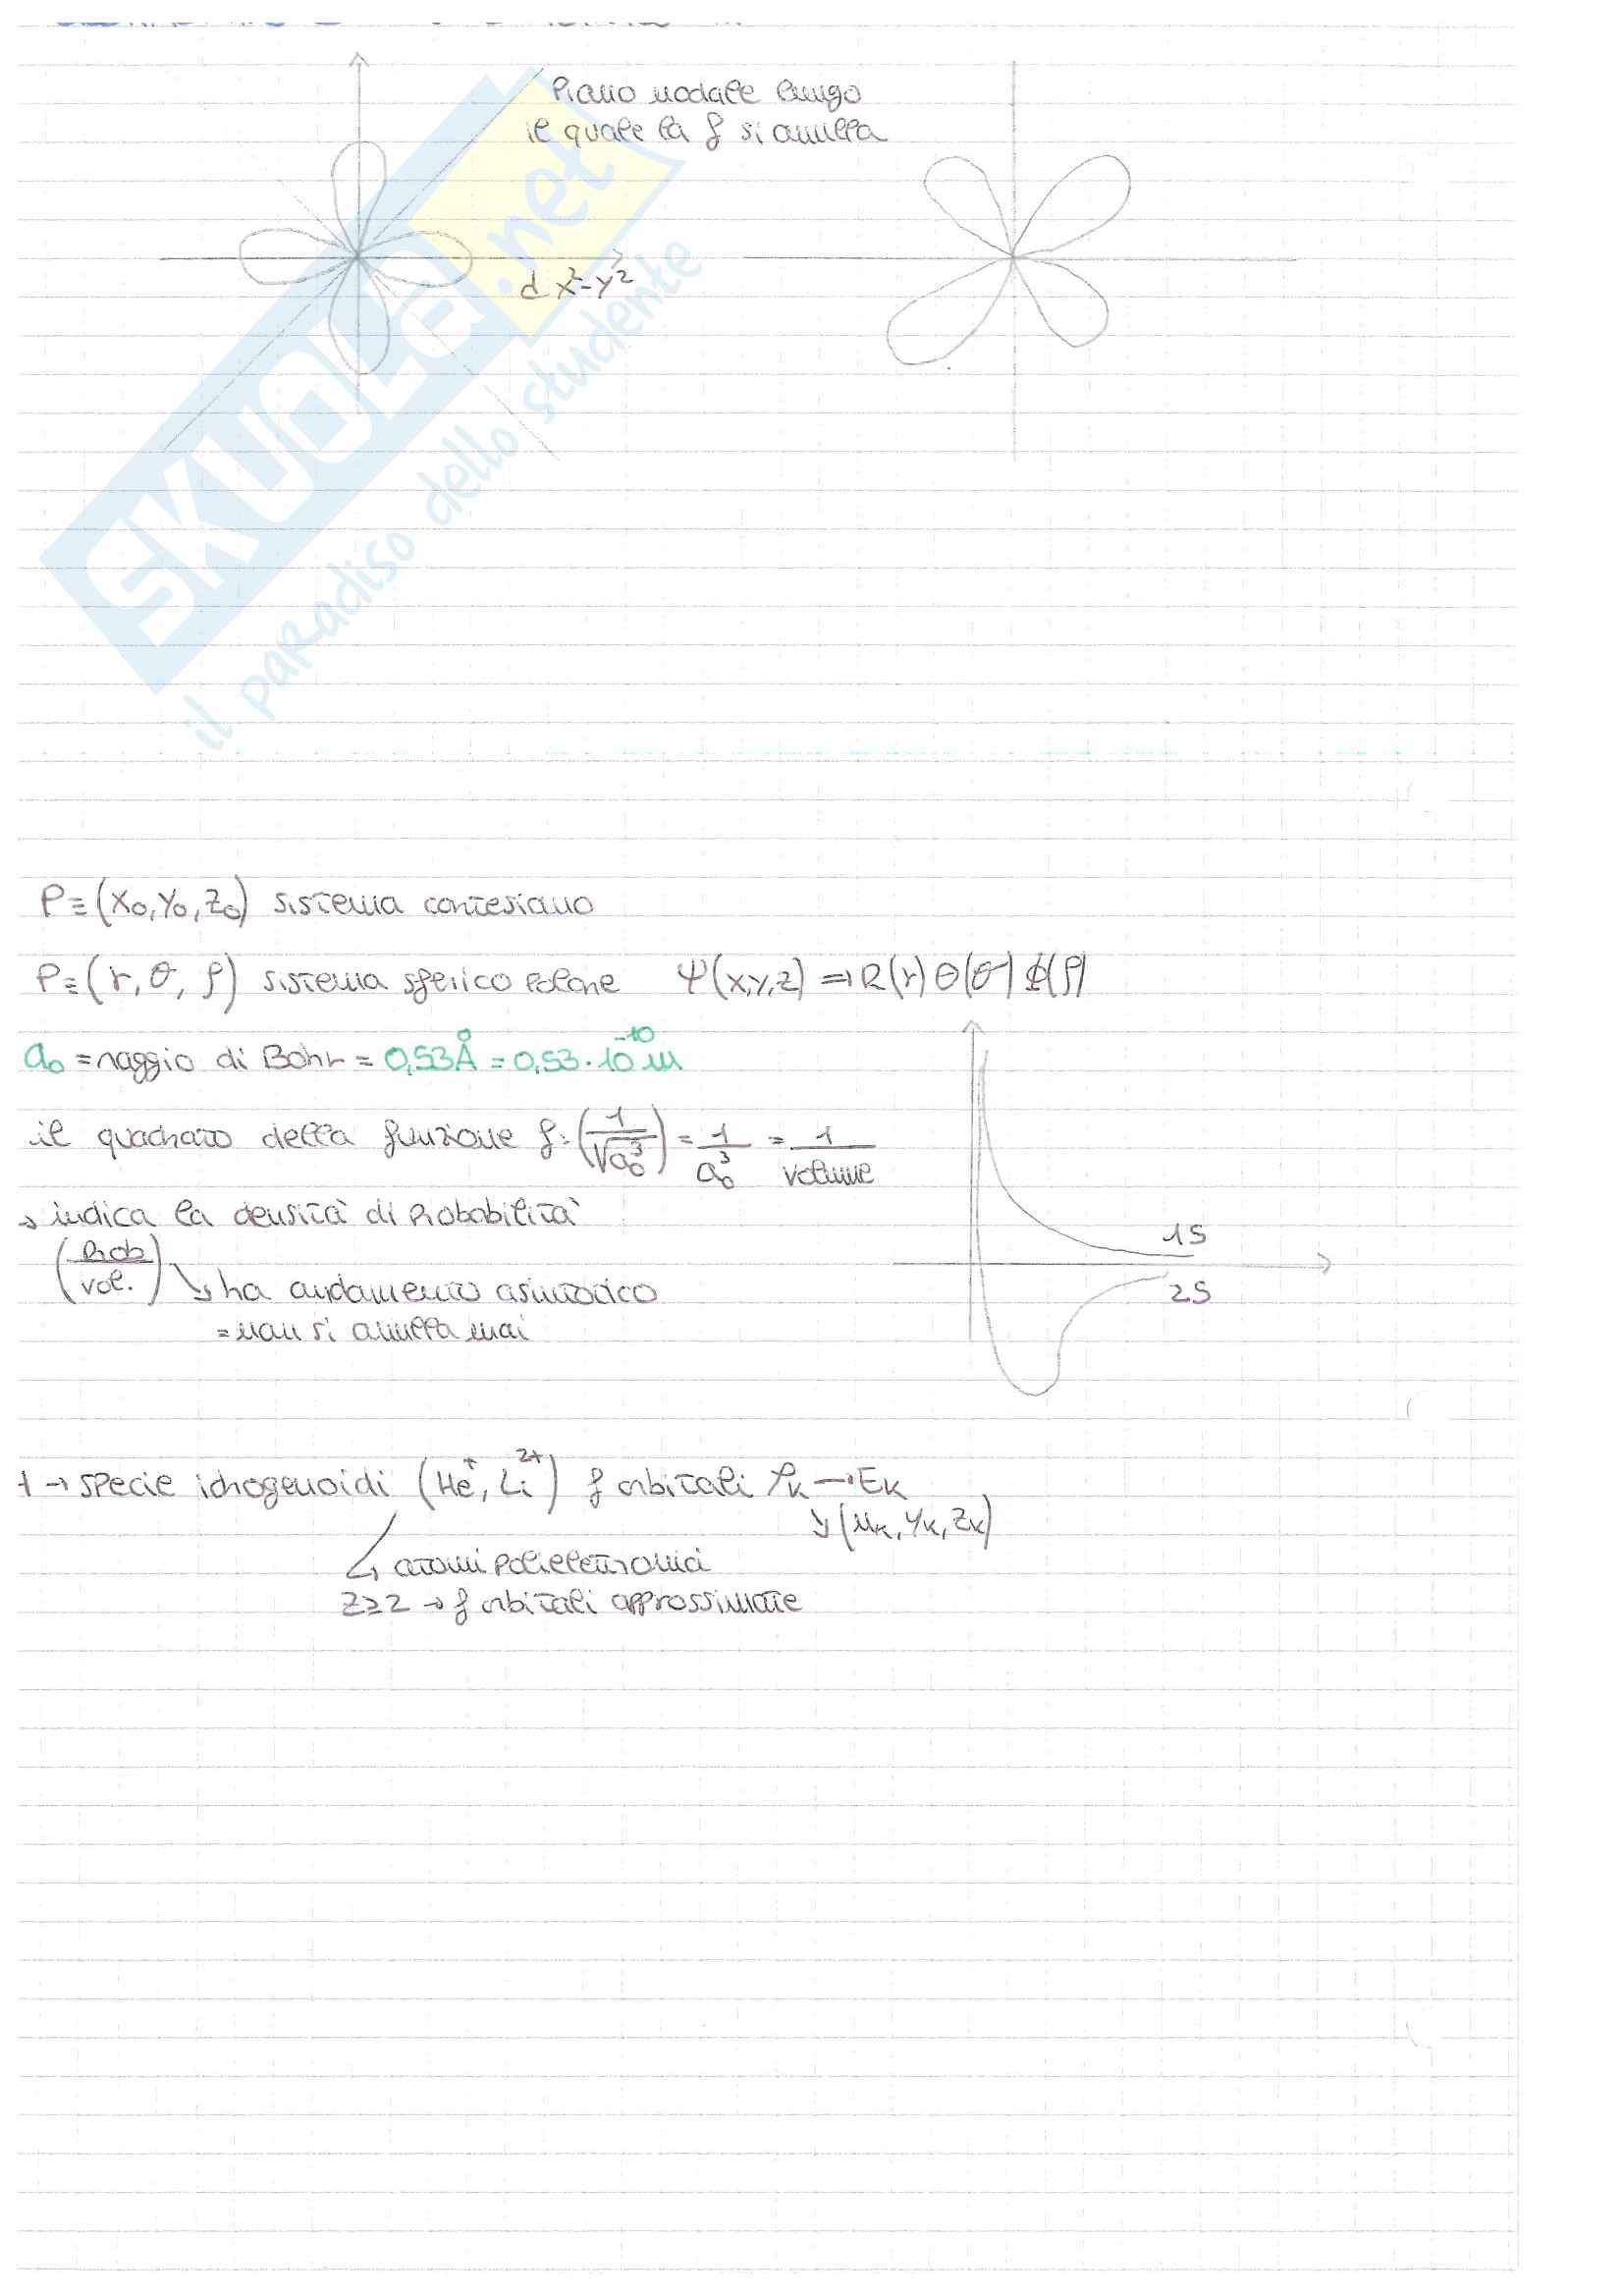 Piano nodale lungo
il quale la f si annulla
d x²-y²
SKUOLA.net
il paradiso dello studente
P≡(x₀,y₀,z₀) sistema cartesiano
P≡(r,θ,φ) sistema sferico polare ψ(x,y,z) ⇒ R(r) Θ(θ) Φ(φ)
a₀ = raggio di Bohr = 0,53Å = 0,53·10⁻¹⁰ m
il quadrato della funzione f: (1/√a₀³) = 1/a₀³ = 1/volume
↘ indica la densità di probabilità
(prob/vol.) ↘ ha andamento asintotico
= non si annulla mai
1S
2S
→ specie idrogenoidi (He⁺, Li²⁺) f orbitali ψₖ → Eₖ
↘ (xₖ, yₖ, zₖ)
↳ atomi polielettronici
Z≥2 → f orbitali approssimate